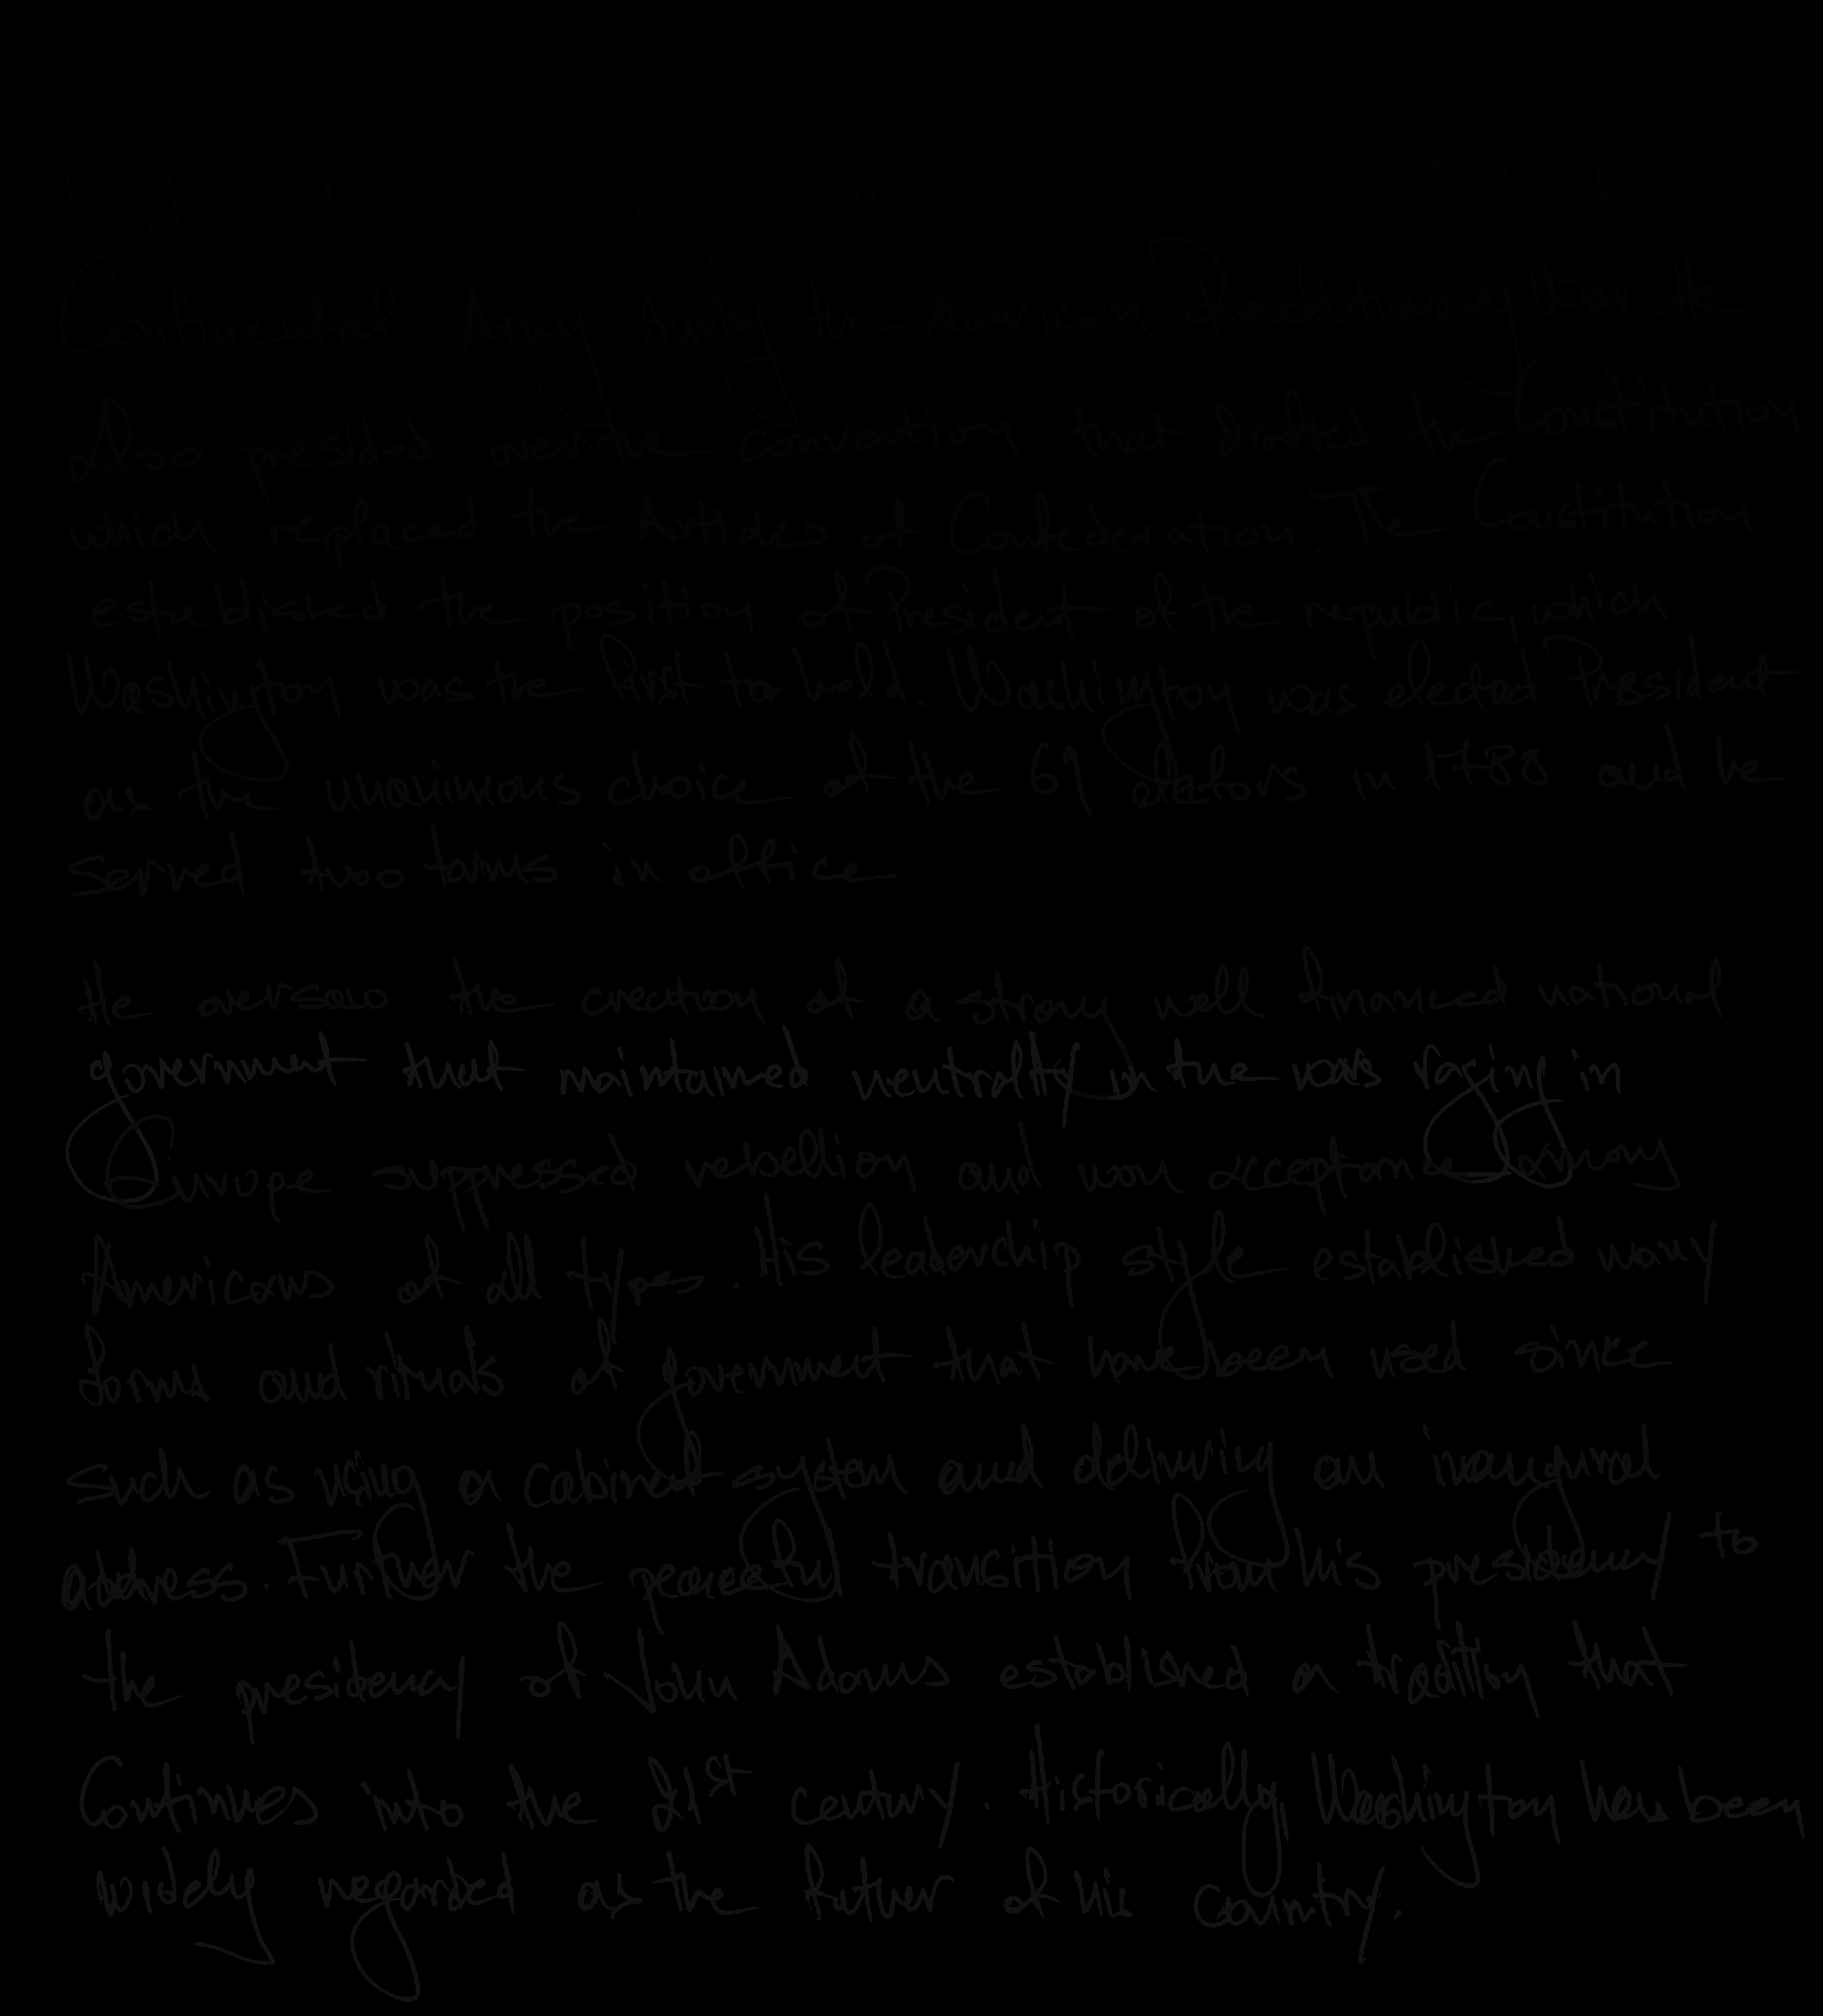 George Washington was one of the Founding Fathers of the
United States serving as the commander in chief of the
Continental Army during the American Revolutionary War. He
Also presided over the convention that drafted the Constitution
which replaced the Articles of Confederation. The Constitution
established the position of President of the republic, which
Washington was the first to hold. Washington was elected President
as the unanimous choice of the 69 electors in 1788 and he
served two terms in office
He oversaw the creation of a strong well financed national
government that maintained neutrality in the wars raging in
Europe suppressed rebellion and won acceptance among
Americans of all types. His leadership style established many
forms and rituals of government that have been used since
such as using a cabinet system and delivering an inaugural
address. Further the peaceful transition from his presidency to
the presidency of John Adams established a tradition that
Continues into the 21st century. Historically, Washington has been
widely regarded as the father of his country.